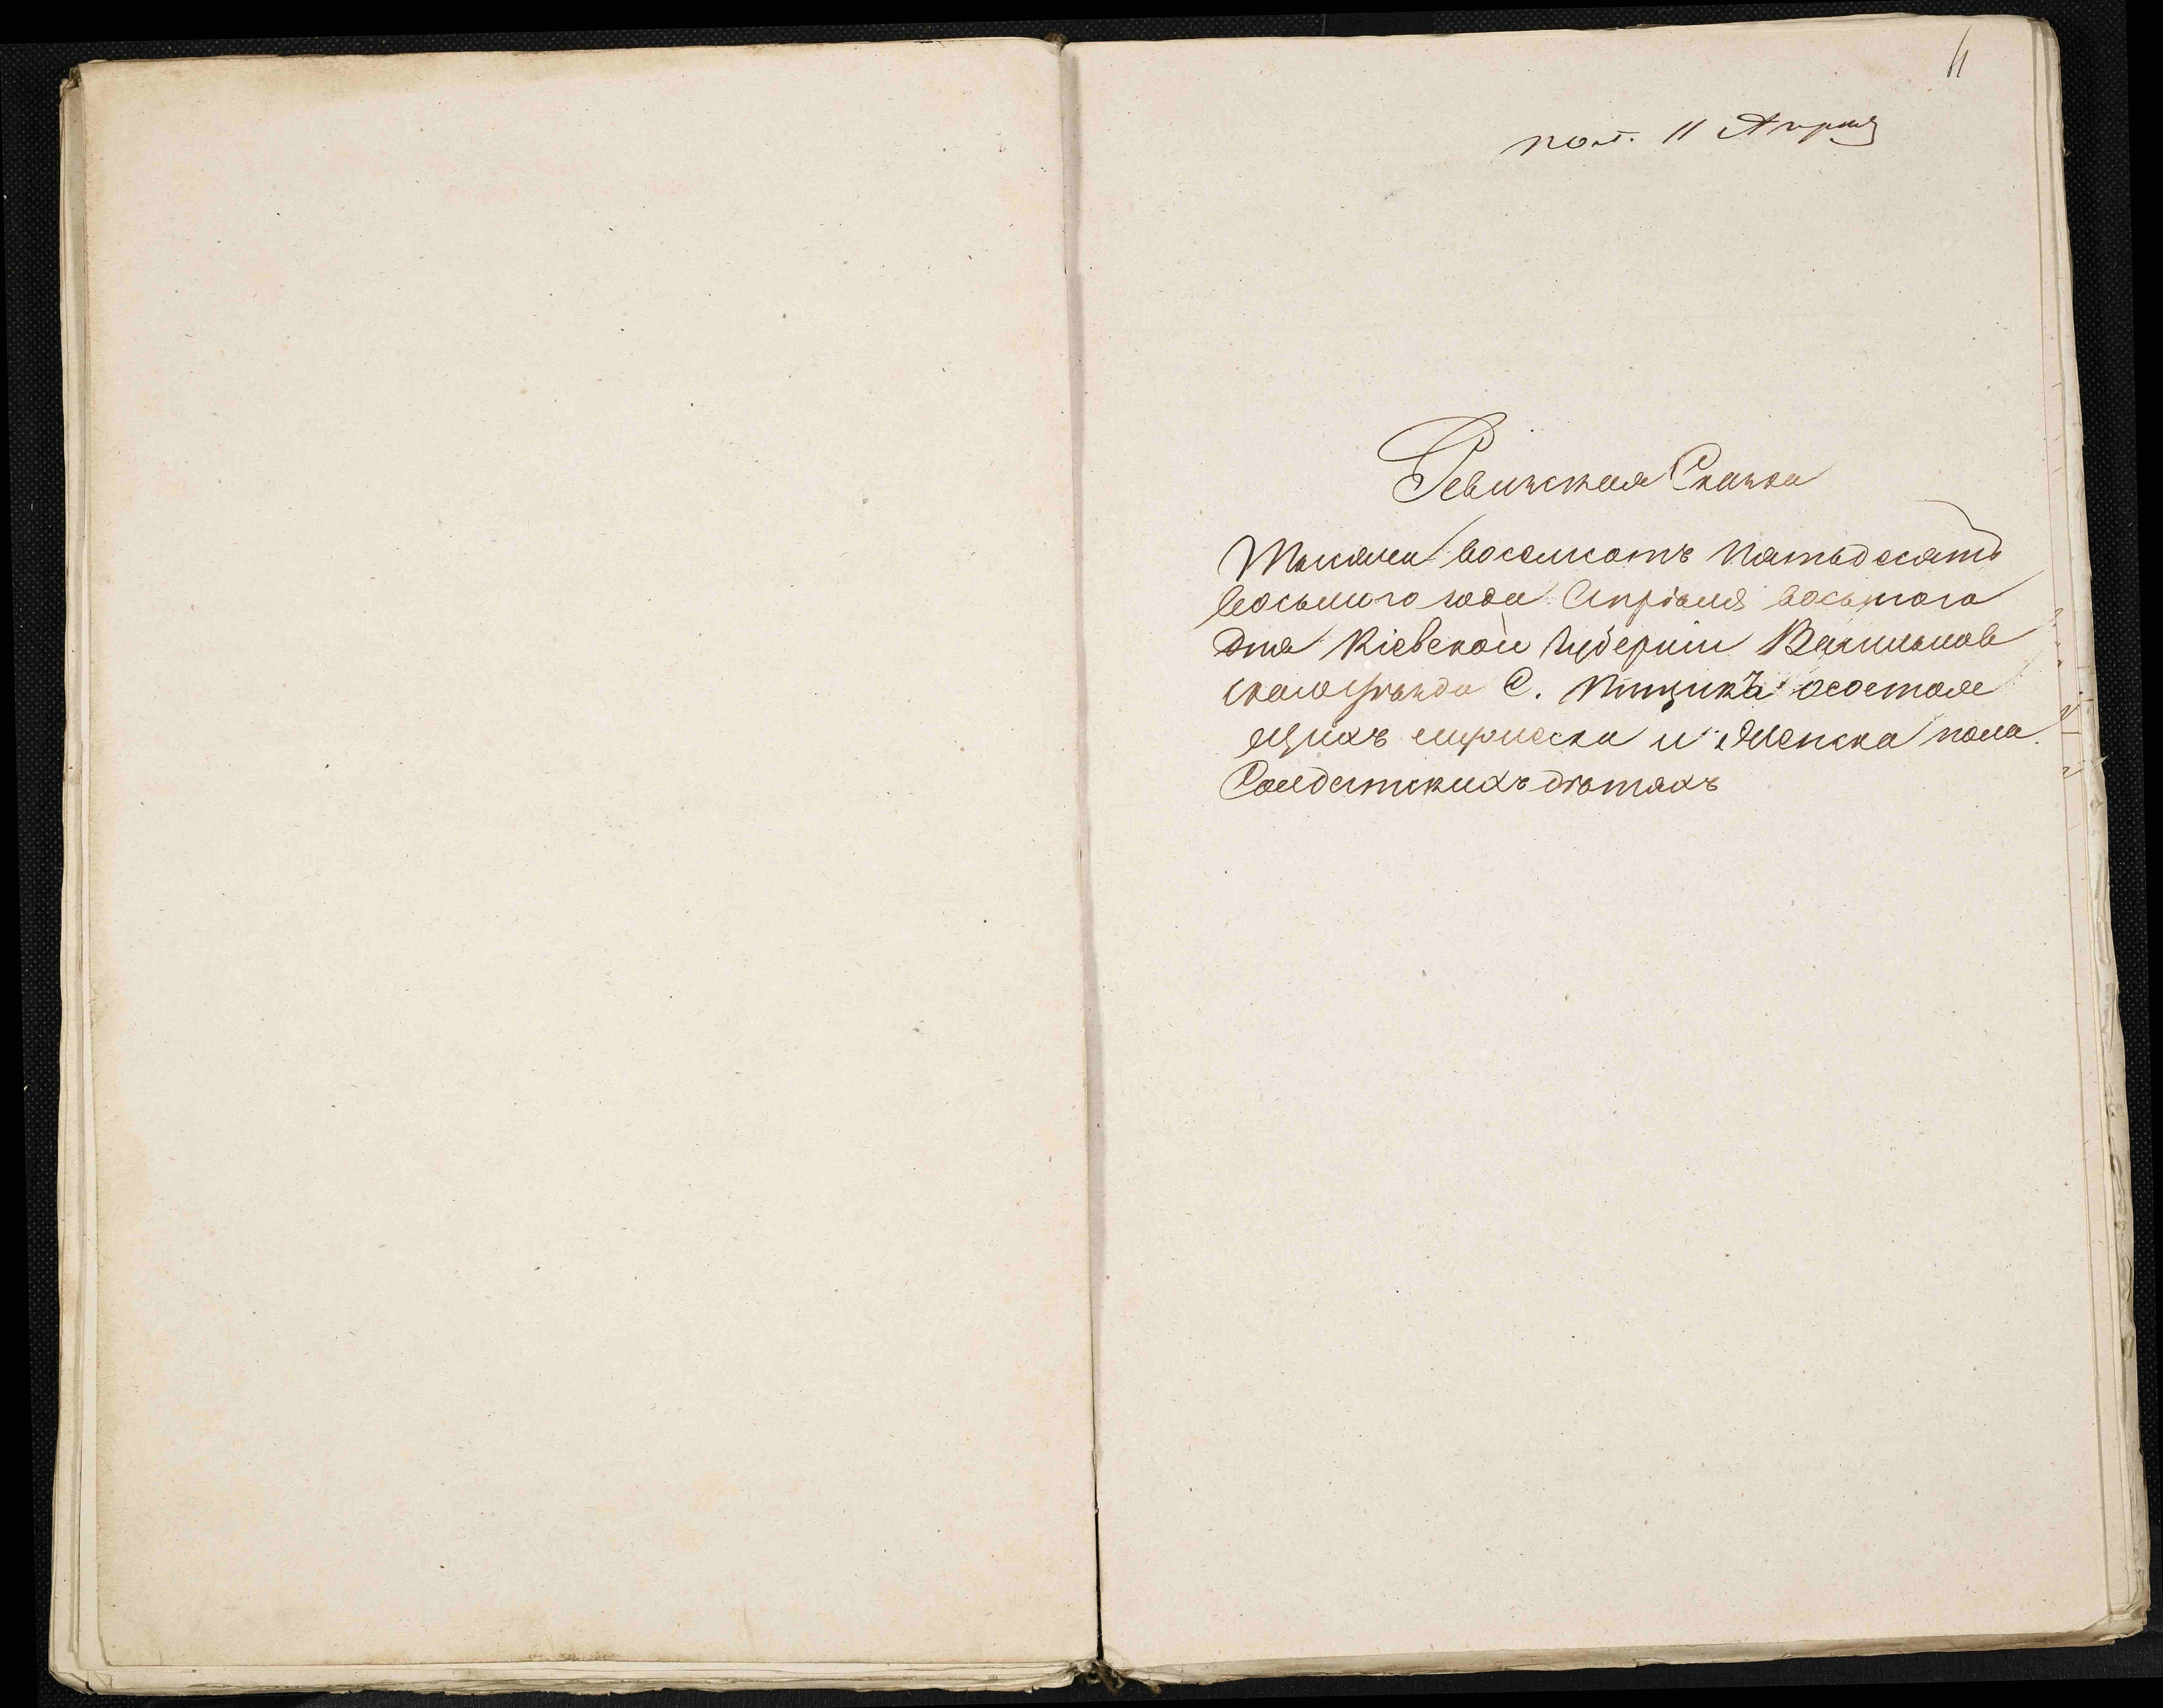 11
пол. 11 Апреля
Ревизская Сказка
Тысяча восемсотъ пятьдесятъ
восьмого года Апрѣля восьмого
дня Кіевской губерніи Васильков
скаго уѣзда С. Пищикъ осостоя
щихъ мужеска и женска пола
Солдатскихъ дѣтяхъ